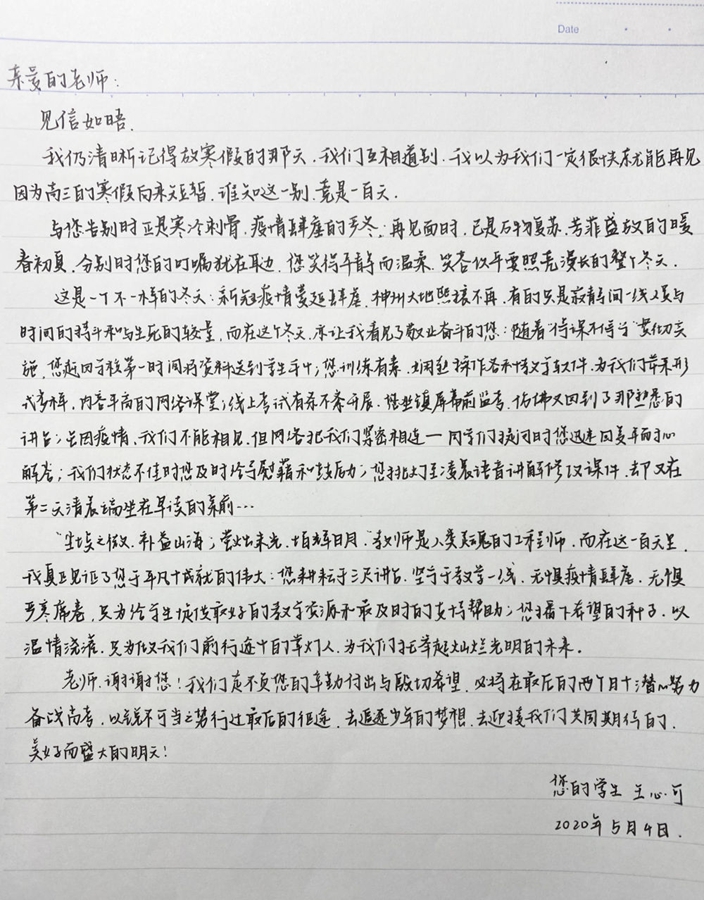 Date
亲爱的老师:
见信如晤.
我仍清晰记得放寒假的那天.我们互相道别.我以为我们一定很快就能再见
因为高三的寒假向来短暂.谁知这一别,竟是一百天.
与您告别时正是寒冷刺骨.疫情肆虐的严冬;再见面时.已是万物复苏.芳菲盛放的暖
春初夏.分别时您的叮嘱犹在耳边.您笑得平静而温柔.笑容似乎要照亮漫长的整个冬天.
这是一个不一样的冬天:新冠疫情蔓延肆虐.神州大地熙攘不再.有的只是寂静间一线人员与
时间的搏斗和与生死的较量,而在这个冬天.亦让我看见了敬业奋斗的您:随着"停课不停学"贯切实
施,您赶回学校第一时间将资料送到学生手中;您训练有素.娴熟操作各种教学软件.为我们带来形
式多样,内容丰富的网络课堂;线上考试有条不紊开展.您坐镇屏幕前监考.仿佛又回到了那熟悉的
讲台;虽因疫情,我们不能相见,但网络把我们紧密相连—同学们提问时您迅速回复耐心
解答;我们状态不佳时您及时给予慰藉和鼓励;您挑灯至凌晨语音讲解修改课件.却又在
第二天清晨端坐在早读的桌前…
"尘埃之微.补益山海;萤火末光.增辉日月."教师是人类灵魂的工程师,而在这一百天里.
我真正见证了您于平凡中成就的伟大:您耕耘于三尺讲台.坚守于教学一线.无惧疫情肆虐.无惧
严寒席卷,只为给学生提供最好的教学资源和最及时的支持帮助;您播下希望的种子.以
温情浇灌.只为做我们前行途中的掌灯人.为我们托举起灿烂光明的未来.
老师.谢谢您!我们定不负您的辛勤付出与殷切希望.必将在最后的两个月中潜心努力
备战高考,以锐不可当之势行过最后的征途.去追逐少年的梦想.去迎接我们共同期待的.
美好而盛大的明天!
您的学生 王心可
2020年5月4日.